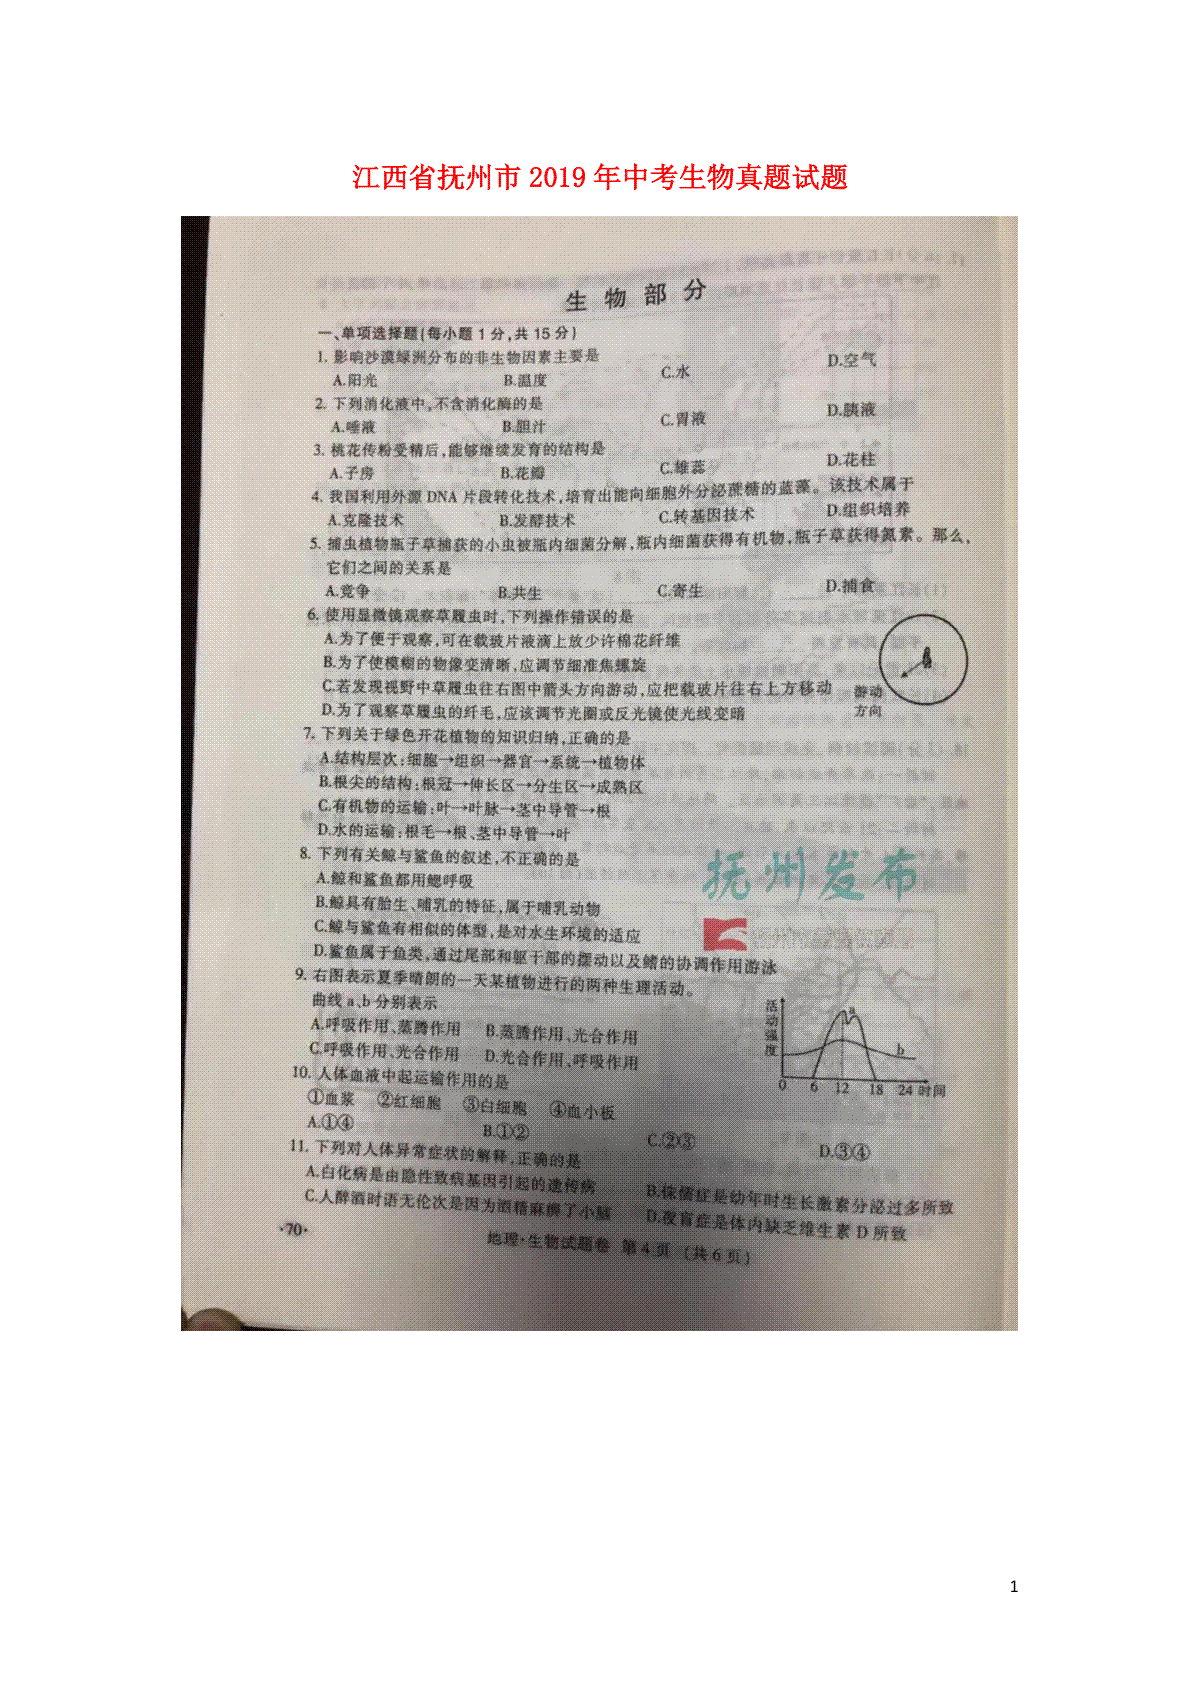 江西省抚州市 2019 年中考生物真题试题
生 物 部 分
一、单项选择题(每小题 1 分,共 15 分)
1. 影响沙漠绿洲分布的非生物因素主要是
A.阳光 B.温度 C.水 D.空气
2. 下列消化液中,不含消化酶的是
A.唾液 B.胆汁 C.胃液 D.胰液
3. 桃花传粉受精后,能够继续发育的结构是
A.子房 B.花瓣 C.雄蕊 D.花柱
4. 我国利用外源 DNA 片段转化技术,培育出能向细胞外分泌蔗糖的蓝藻。该技术属于
A.克隆技术 B.发酵技术 C.转基因技术 D.组织培养
5. 捕虫植物瓶子草捕获的小虫被瓶内细菌分解,瓶内细菌获得有机物,瓶子草获得氮素。那么,
它们之间的关系是
A.竞争 B.共生 C.寄生 D.捕食
6. 使用显微镜观察草履虫时,下列操作错误的是
A.为了便于观察,可在载玻片液滴上放少许棉花纤维
B.为了使模糊的物像变清晰,应调节细准焦螺旋
C.若发现视野中草履虫往右图中箭头方向游动,应把载玻片往右上方移动
D.为了观察草履虫的纤毛,应该调节光圈或反光镜使光线变暗
游动
方向
7. 下列关于绿色开花植物的知识归纳,正确的是
A.结构层次:细胞→组织→器官→系统→植物体
B.根尖的结构:根冠→伸长区→分生区→成熟区
C.有机物的运输:叶→叶脉→茎中导管→根
D.水的运输:根毛→根、茎中导管→叶
8. 下列有关鲸与鲨鱼的叙述,不正确的是
A.鲸和鲨鱼都用鳃呼吸
B.鲸具有胎生、哺乳的特征,属于哺乳动物
C.鲸与鲨鱼有相似的体型,是对水生环境的适应
D.鲨鱼属于鱼类,通过尾部和躯干部的摆动以及鳍的协调作用游泳
抚州发布
9. 右图表示夏季晴朗的一天某植物进行的两种生理活动。
曲线 a、b 分别表示
A.呼吸作用、蒸腾作用 B.蒸腾作用、光合作用
C.呼吸作用、光合作用 D.光合作用、呼吸作用
活动强度
a
b
0 6 12 18 24 时间
10. 人体血液中起运输作用的是
①血浆 ②红细胞 ③白细胞 ④血小板
A.①④ B.①② C.②③ D.③④
11. 下列对人体异常症状的解释,正确的是
A.白化病是由隐性致病基因引起的遗传病 B.侏儒症是幼年时生长激素分泌过多所致
C.人醉酒时语无伦次是因为酒精麻痹了小脑 D.夜盲症是体内缺乏维生素 D 所致
·70· 地理·生物试题卷 第 4 页 (共 6 页)
1